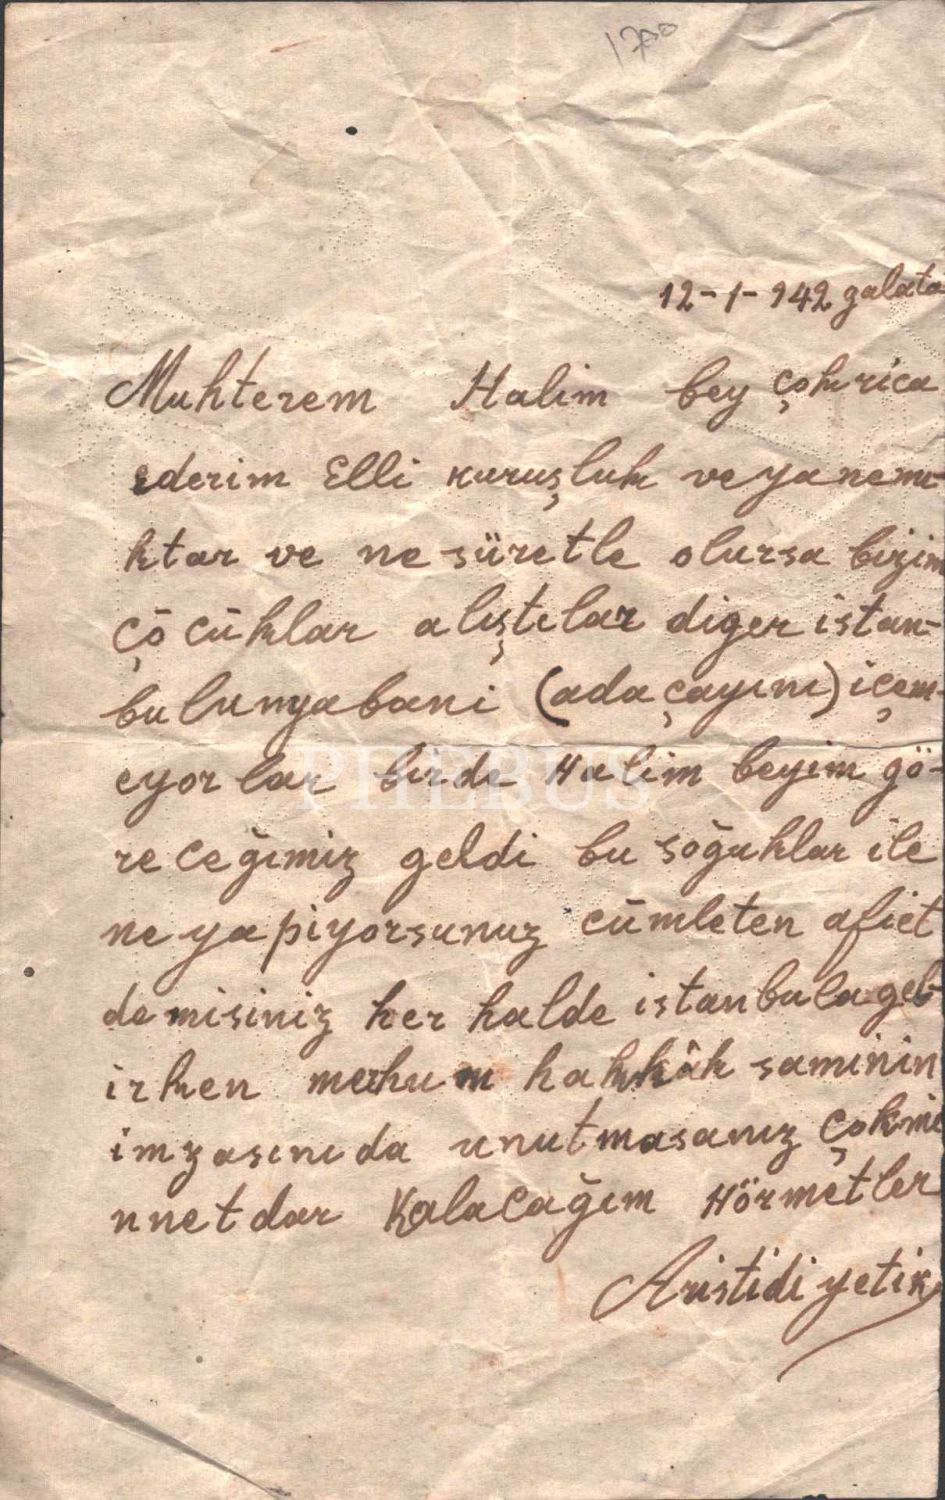 1700
12-1-942 galata
Muhterem Halim bey çok rica
ederim Elli kuruşluk veya nemi-
ktar ve ne süretle olursa bizim
çöcüklar alıştılar diger istan-
bulun yabani (ada çayını) içem-
eyorlar birde Halim beyim gö-
receğimiz geldi bu soğuklar ile
ne yapiyorsunuz cümleten afiet
demisiniz her halde istanbula gel-
irken merhum hakkâk saminin
imzasını da unutmasanız çok mi
nnetdar Kalacağım Hörmetler
Aristidi yetik
PHEBUS